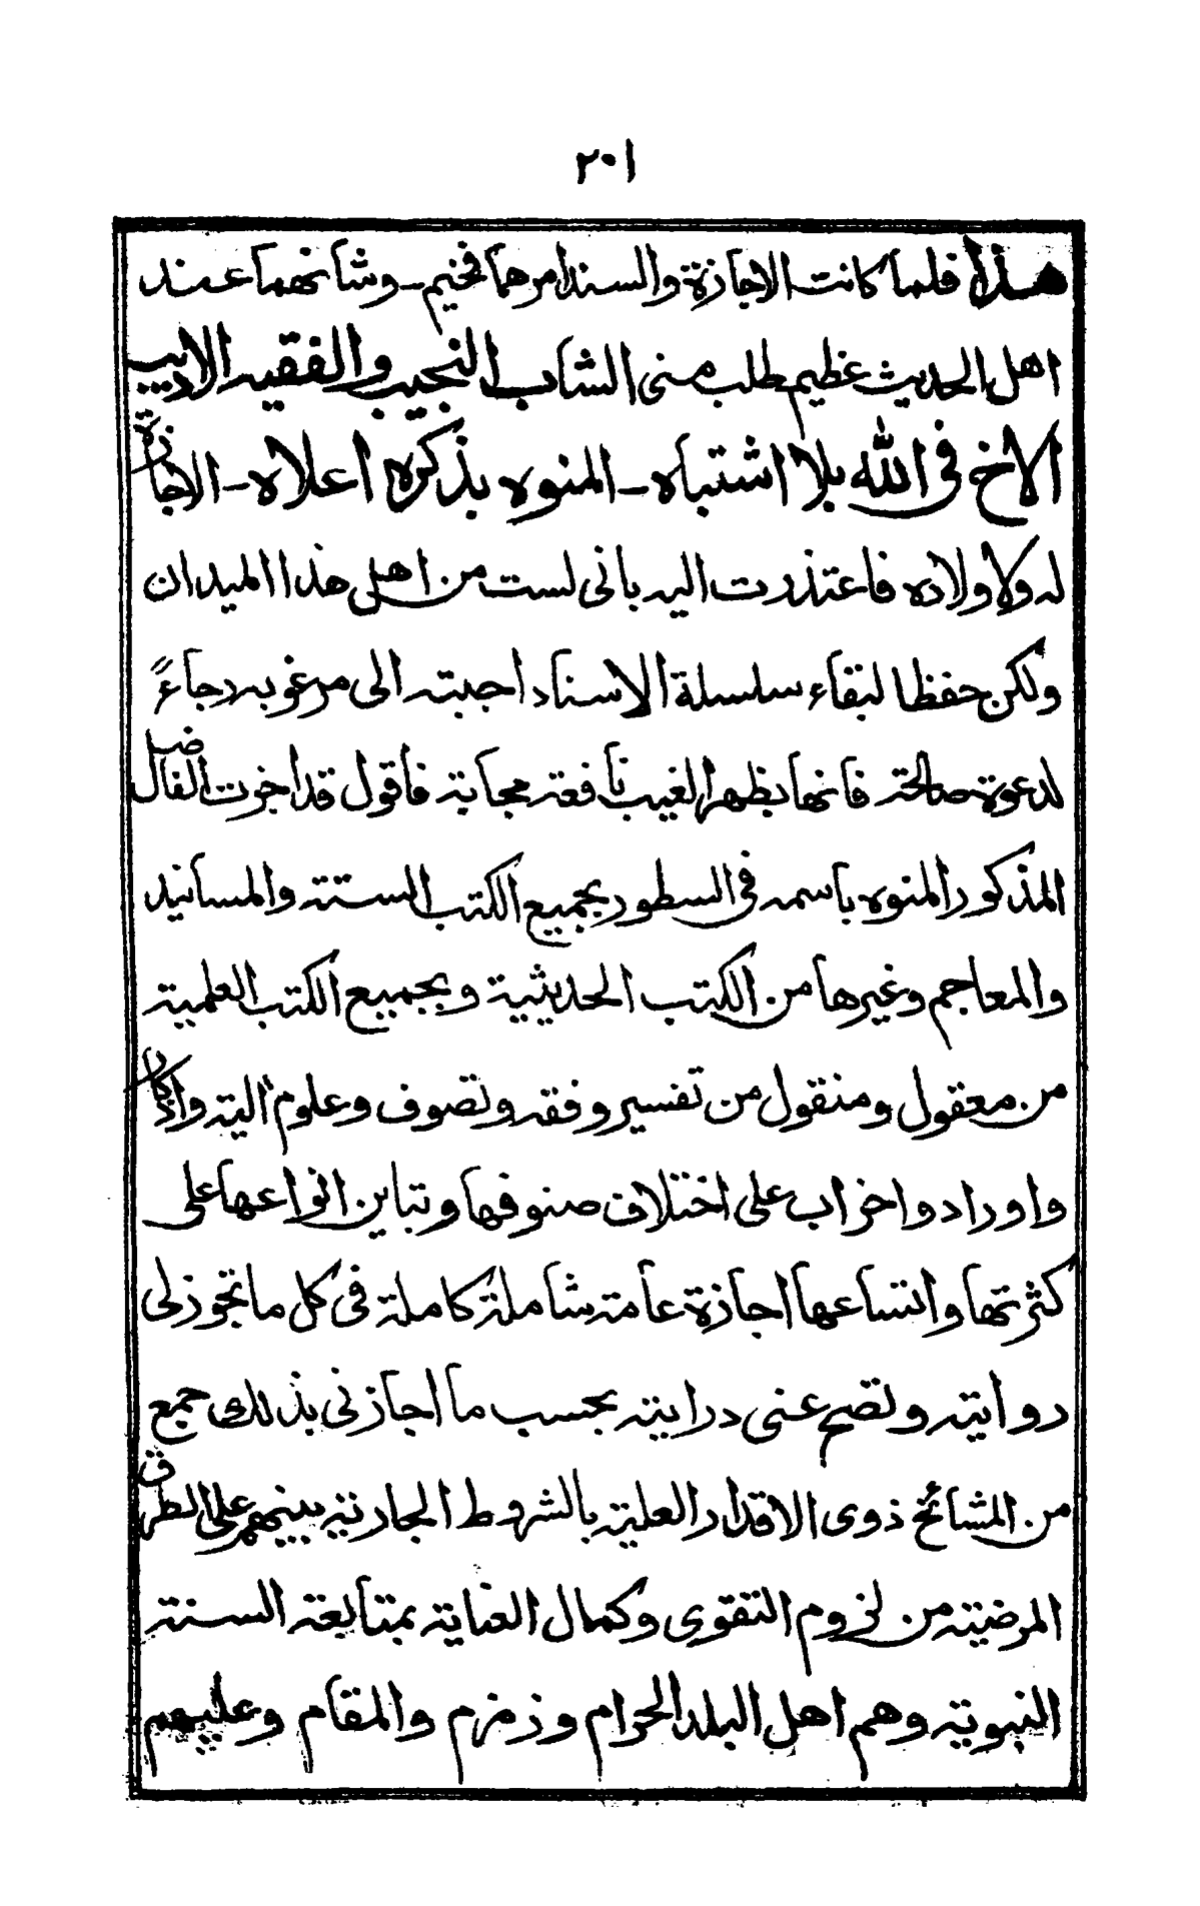 ٢٠١
هذا فلما كانت الاجازة والسند امرهما فخيم ـ وشانهما عند
اهل الحديث عظيم طلب منى الشاب النجيب والفقيه الاديب
الاخ فى الله بلا اشتباه ـ المنوه بذكره اعلاه ـ الاجازة
له ولاولاده فاعتذرت اليه بانى لست من اهل هذا الميدان
ولكن حفظا لبقاء سلسلة الاسناد اجبته الى مرغوبه رجاءً
لدعوة صالحة فانها بظهر الغيب نافعة مجابة فاقول قد اجزت الفاضل
المذكور المنوه باسمه فى السطور بجميع الكتب الستة والمسانيد
والمعاجم وغيرها من الكتب الحديثية وبجميع الكتب العلمية
من معقول ومنقول من تفسير وفقه وتصوف وعلوم الية واذكار
واوراد واحزاب على اختلاف صنوفها وتباين انواعها على
كثرتها واتساعها اجازة عامة شاملة كاملة فى كل ما تجوز لى
روايته وتصح عنى درايته بحسب ما اجازنى بذلك جمع
من المشائخ ذوى الاقدار العلية بالشروط الجارية بينهم على الطرق
المرضية من لزوم التقوى وكمال العناية بمتابعة السنة
النبوية وهم اهل البلد الحرام وزمزم والمقام وعليهم